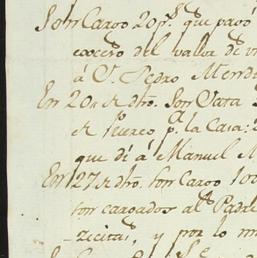 Son Cargo 20 p.s que pagó
cocero del valor de u
á D.n Pedro Mend
En 20 de dho. Son Data
de Puerco p.a la Casa:
que dí á Manuel M
En 27 de dho. Son Cargo 100
son cargados al Padre
zicitas, y por lo m